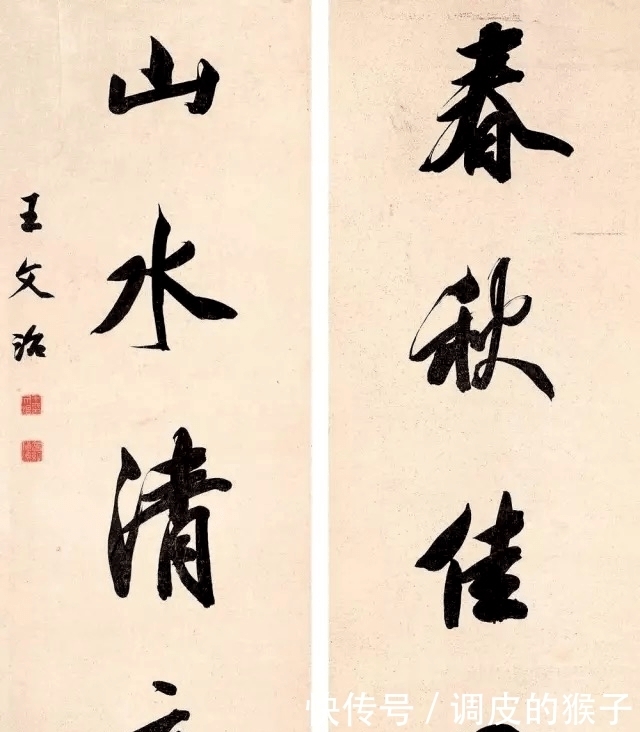 春秋佳
山水清
王文治
快传号 / 调皮的猴子